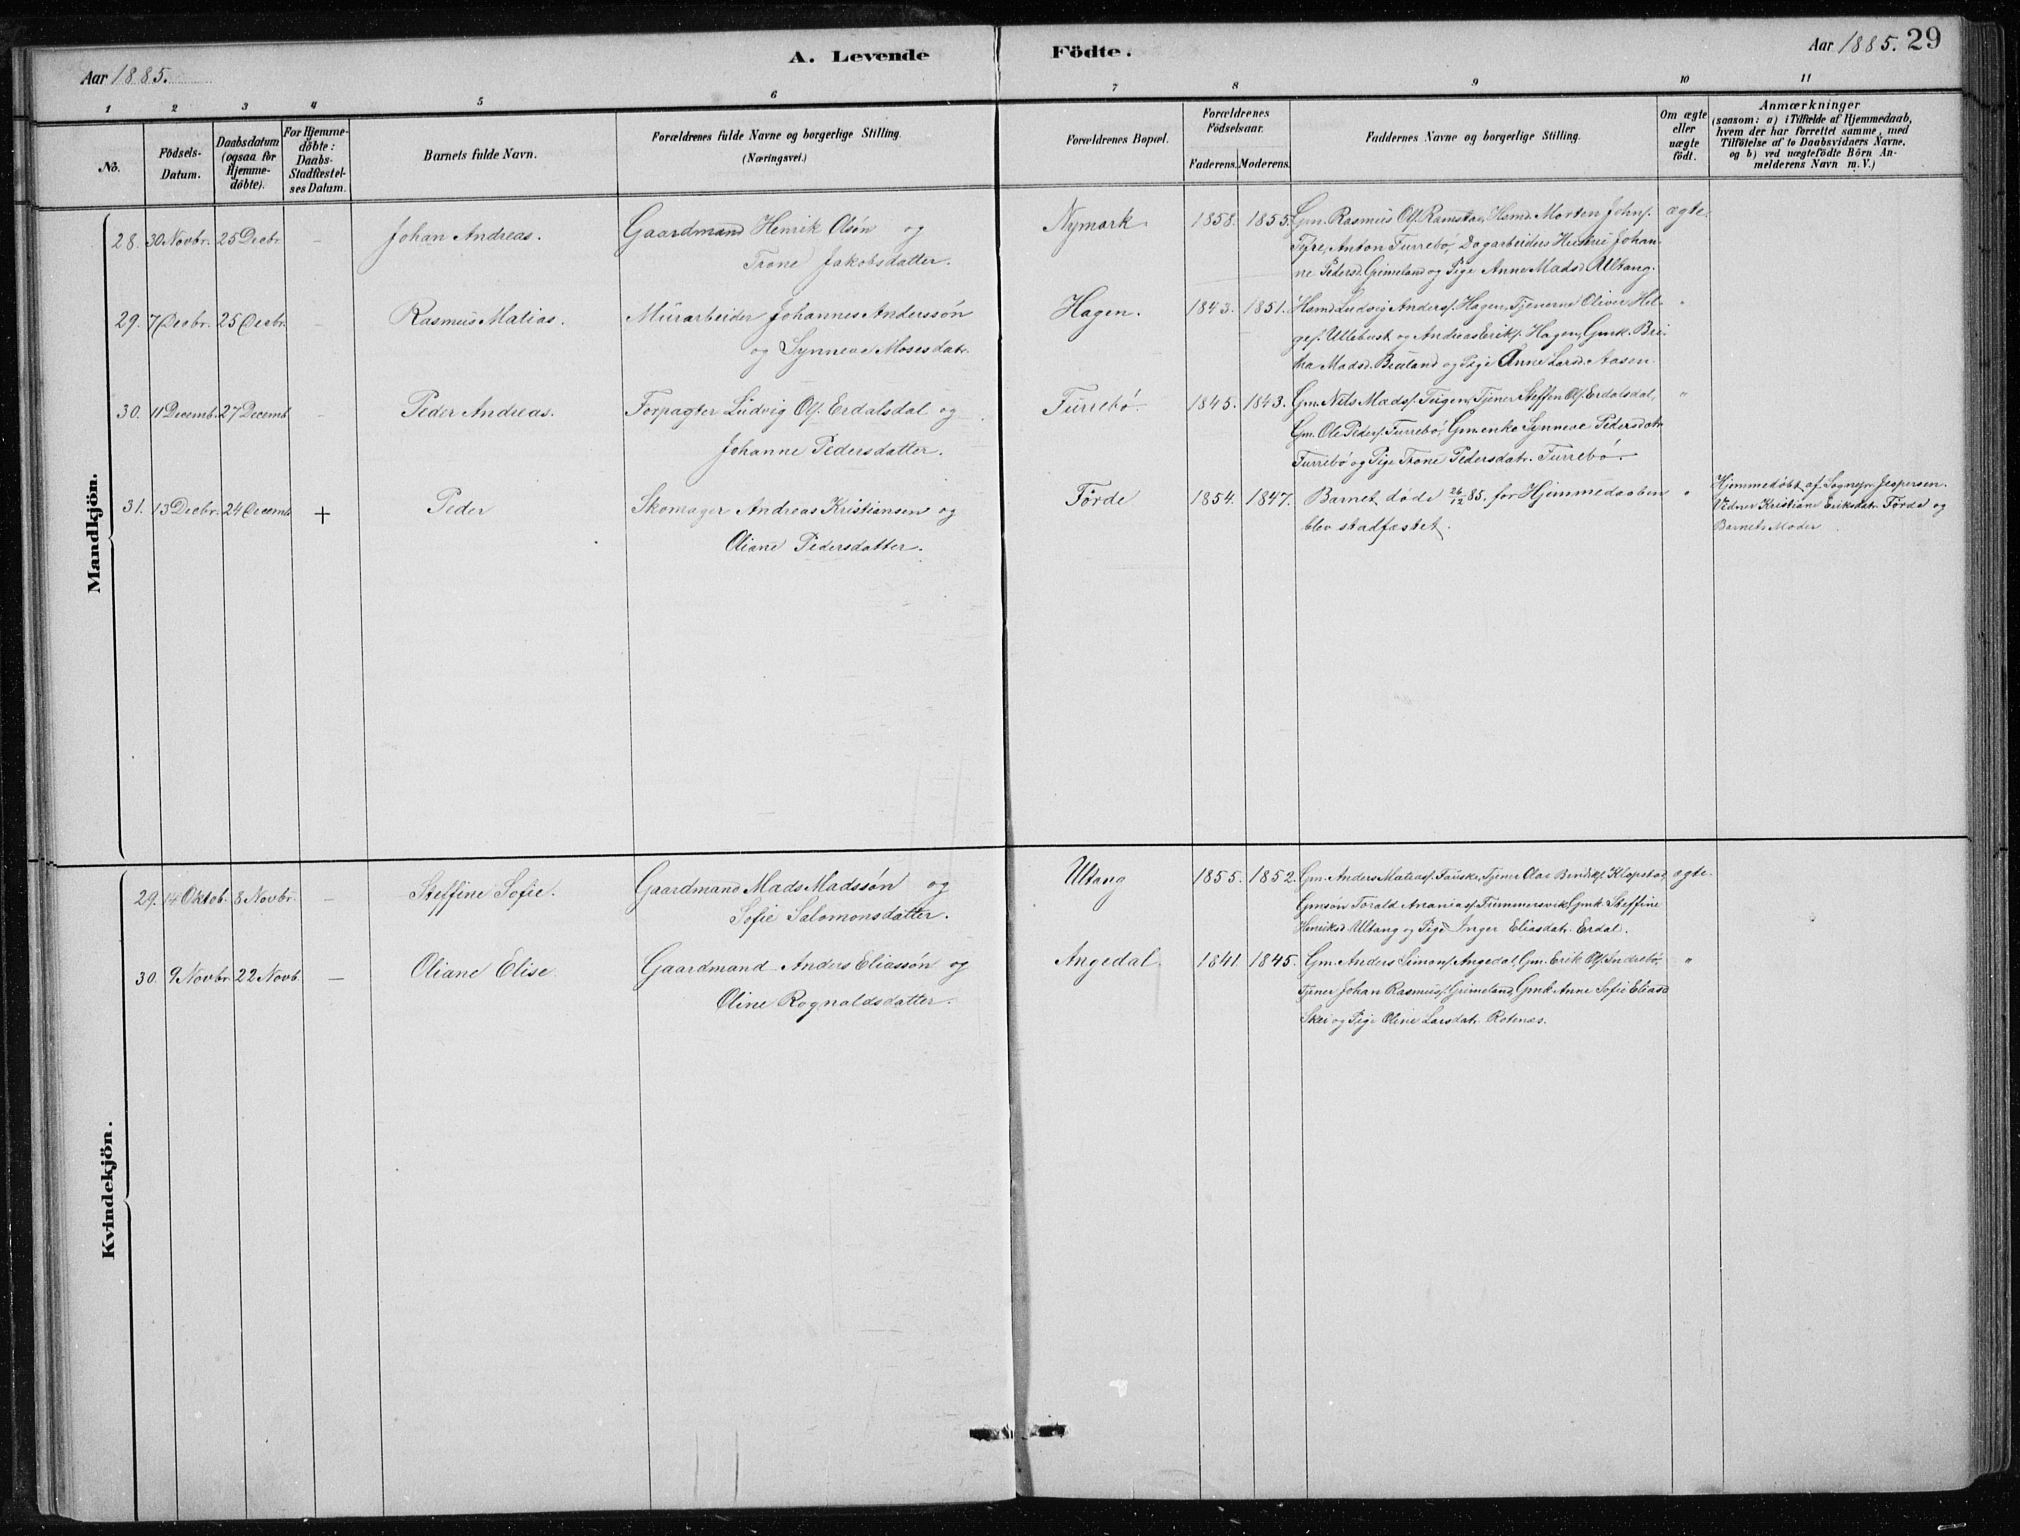 A. Levende Födte.
Aar 1885.
Aar 1885. 29
1 2 3 4 5 6 7 8 9 10 11
No.
Födsels-
Datum.
Daabsdatum
(ogsaa for
Hjemme-
döbte).
For Hjemme-
döbte:
Daabs-
Stadfæstel-
ses Datum.
Barnets fulde Navn.
Forældrenes fulde Navne og borgerlige Stilling.
(Næringsvei.)
Forældrenes Bopæl.
Forældrenes
Födselsaar.
Faderens. Moderens.
Faddernes Navne og borgerlige Stilling.
Om ægte
eller
uægte
födt.
Anmærkninger
(saasom: a) i Tilfælde af Hjemmedaab,
hvem der har forrettet samme, med
Tilföielse af to Daabsvidners Navne,
og b) ved uægtefödte Börn An-
melderens Navn m. V.)
Mandkjön.
28. 30 Novbr. 25 Decbr. – Johan Andreas. Gaardmand Henrik Olsön og
Trone Jakobsdatter.
Nymark 1858. 1855. Gm. Rasmus Ols. Ramstad, Hsmd. Morten Johns.
Tyre, Anton Furrebö, Dagarbeiders Hustru Johan-
ne Pedersd. Grimeland og Pige Anne Madsd. Ultang.
ægte.
29. 7 Decbr. 25 Decbr. – Rasmus Matias. Murarbeider Johannes Anderssön
og Synneve Mosesdatr.
Hagen. 1843. 1851. Hsmd. Ludvig Anders. Hagen, Tjenerne Oliver Hel-
ges. Ullebust og Andreas Eriks. Hagen, Gmk. Bri-
tha Madsd. Bruland og Pige Anne Larsd. Aasen.
"
30. 11 Decemb. 27 Decemb. – Peder Andreas. Forpagter Ludvig Ols. Erdalsdal og
Johanne Pedersdatter.
Furrebö 1845. 1843. Gm. Nils Mads. Teigen, Tjener Steffen Ols. Erdalsdal,
Gm. Ole Peders. Furrebö, Gm.enke Synneve Pedersdatr.
Furrebö og Pige Trone Pedersdatr. Furrebö.
"
31. 13 Decbr. 24 Decemb. + Peder Skomager Andreas Kristiansen og
Oliane Pedersdatter.
Förde 1854. 1847. Barnet döde 26/12 85, för Hjemmedaaben
blev stadfæstet.
"
Hjemmedöbt af Sognepr. Jespersen.
Vidner Kristiane Eriksdatr. Förde og
Barnets Moder.
Kvindekjön.
29. 14 Oktob. 8 Novbr. – Steffine Sofie. Gaardmand Mads Madssön og
Sofie Salomonsdatter.
Ultang 1855. 1852. Gm. Anders Matias. Fauske, Tjener Olai Bendiks. Klopstad,
Gmsön Torald Ananias. Tummersvik, Gmk. Steffine
Henriksd. Ultang og Pige Inger Eliasdatr. Erdal.
ægte.
30. 9 Novbr. 22 Novb. – Oliane Elise. Gaardmand Anders Eliassön og
Oline Rognaldsdatter.
Angedal. 1841 1845. Gm. Anders Simons. Angedal, Gm. Erik Ols. Indrebö,
Tjener Johan Rasmus. Grimeland, Gmk. Anne Sofie Eliasd.
Skei og Pige Oline Larsdatr. Rotenæs.
"